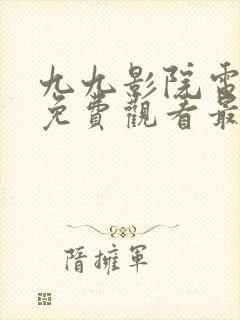 九九影院電
免費觀看最
隋擁軍